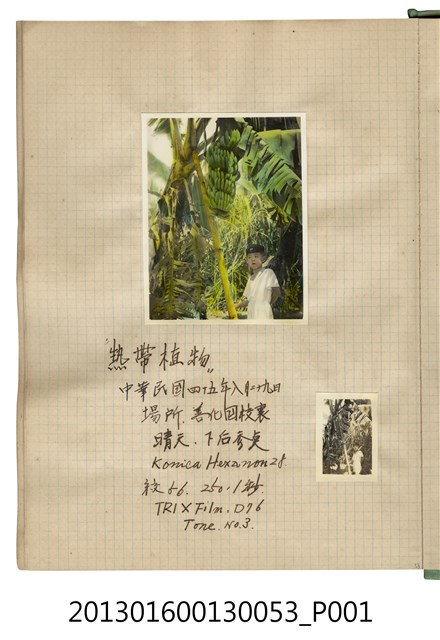 "熱帶植物"
中華民國四十五年八月二十九日
場所.善化国校裏
晴天.下后叁点
Konica Hexanon 2.8.
紋5.6. 250.1秒.
TRI X Film. D76
Tone. No.3.
201301600130053_P001